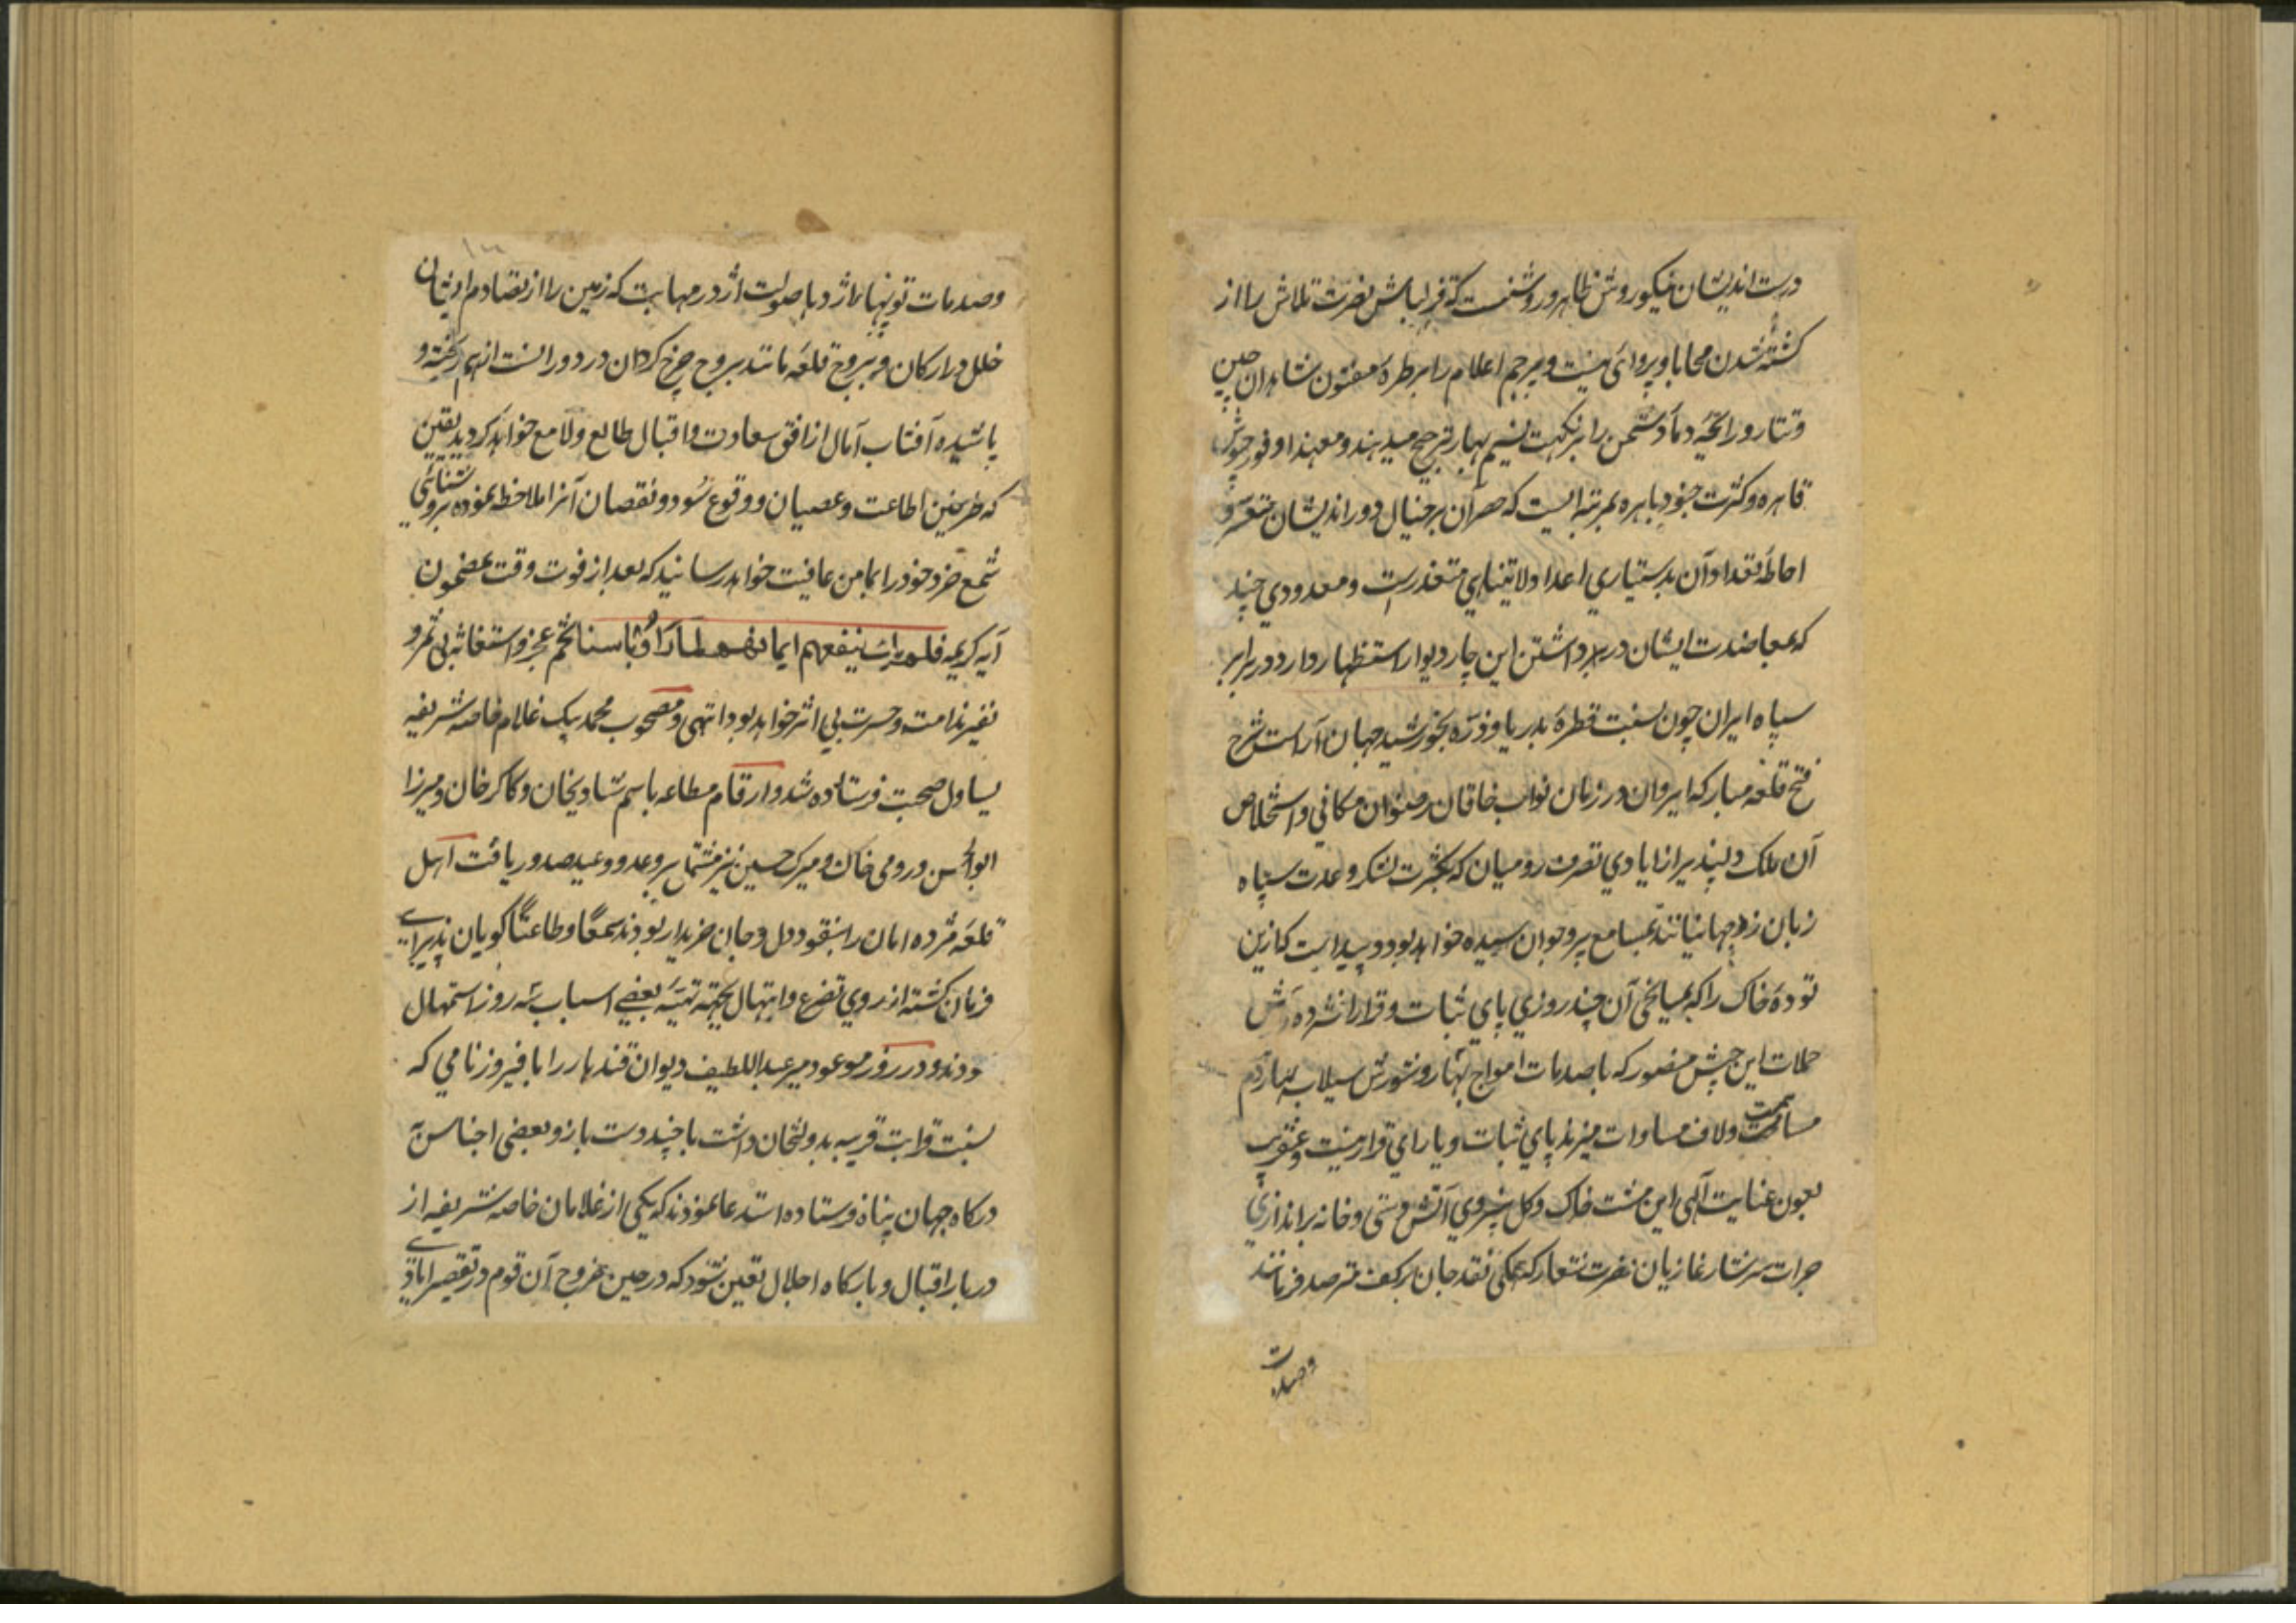 درست اندیشان نیکو روش ظاهر و روشنست که قزلباش نصرت تلاش را از
کشته شدن محابا و پروائی نیست و پرچم اعلام را بر طره مفتون شاهدان چین
و تتار و رایحه دماء دشمن را بر نکهت نسیم بهار ترجیح میدهند و معهذا وفور جیوش
قاهره و کثرت جنود باهره بمرتبه ایست که حصر آن بر خیال دور اندیشان متعسر و
احاطه تعداد آن بدستیاری اعداد لاتیناهی متعذر است و معدودی چند
که بمعاضدت ایشان در برداشتن این چار دیوار استظهار دارد در برابر
سپاه ایران چون نسبت قطره بدریا و ذره بخورشید جهان آراست شرح
فتح قلعه مبارکه ایروان در زمان نواب خاقان رضوان مکانی و استخلاص
آن ملک دلپذیر از ایادی تصرف رومیان که بکثرت لشکر و عدت سپاه
زبان زد جهانیانند بمسامع پیر و جوان رسیده خواهد بود و پیداست که ازین
توده خاک را که بمیانجی آن چند روزی پای ثبات و قرار افشرده در پیش
حملات این جیش منصور که با صدمات امواج بحار و شورش سیلاب بهار دم
مساهمت و لاف مساوات میزند پای ثبات و یارای قرار نیست و عنقریب
بعون عنایت آلهی این مشت خاک و گل بنیروی آتش دستی و خانه براندازی
جرات سرشار غازیان نصرت شعار که همگی نقد جان بر کف مترصد فرمانند
و صدمات
وصدمات توپهای اژدها صولت اژدر مهابت که زمین را از تصادم ایشان
خلل در ارکان و بروج قلعه مانند بروج چرخ گردان در دورانست از هم ریخته و
پاشیده آفتاب آمال از افق سعادت و اقبال طالع و لامع خواهد گردید یقین
که طرفین اطاعت و عصیان و وقوع سود و نقصان آنرا ملاحظه نموده بروشنائی
شمع خرد خود را بمامن عافیت خواهد رسانید که بعد از فوت وقت بمضمون
آیه کریمه فلم یک ینفعهم ایمانهم لما راوا باسنا تخم عجز و استغاثه بی ثمر و
نفیر ندامت و حسرت بی اثر خواهد بود انتهی و مصحوب محمد بیک غلام خاصه شریفه
یساول صحبت فرستاده شد و ارقام مطاعه باسم شادیخان و کاکر خان و میرزا
ابوالحسن و رومی خان و میرک حسین نیز مشتمل بر وعد و وعید صدور یافت اهل
قلعه مژده امان را بنقود دل و جان خریدار بودند سمعا و طاعتا گویان پذیرای
فرمان گشته از روی تضرع و ابتهال بجهة تهیه بعضی اسباب سه روز استمهال
نمودند و در روز موعود میر عبداللطیف دیوان قندهار را با فیروز نامی که
نسبت قرابت قریبه بدولتخان داشت با چند دست باز و بعضی اجناس بآن
درگاه جهان پناه فرستاده استدعا نمودند که یکی از غلامان خاصه شریفه از
دربار اقبال و بارگاه اجلال تعین شود که در حین خروج آن قوم در تقصیر ایادی